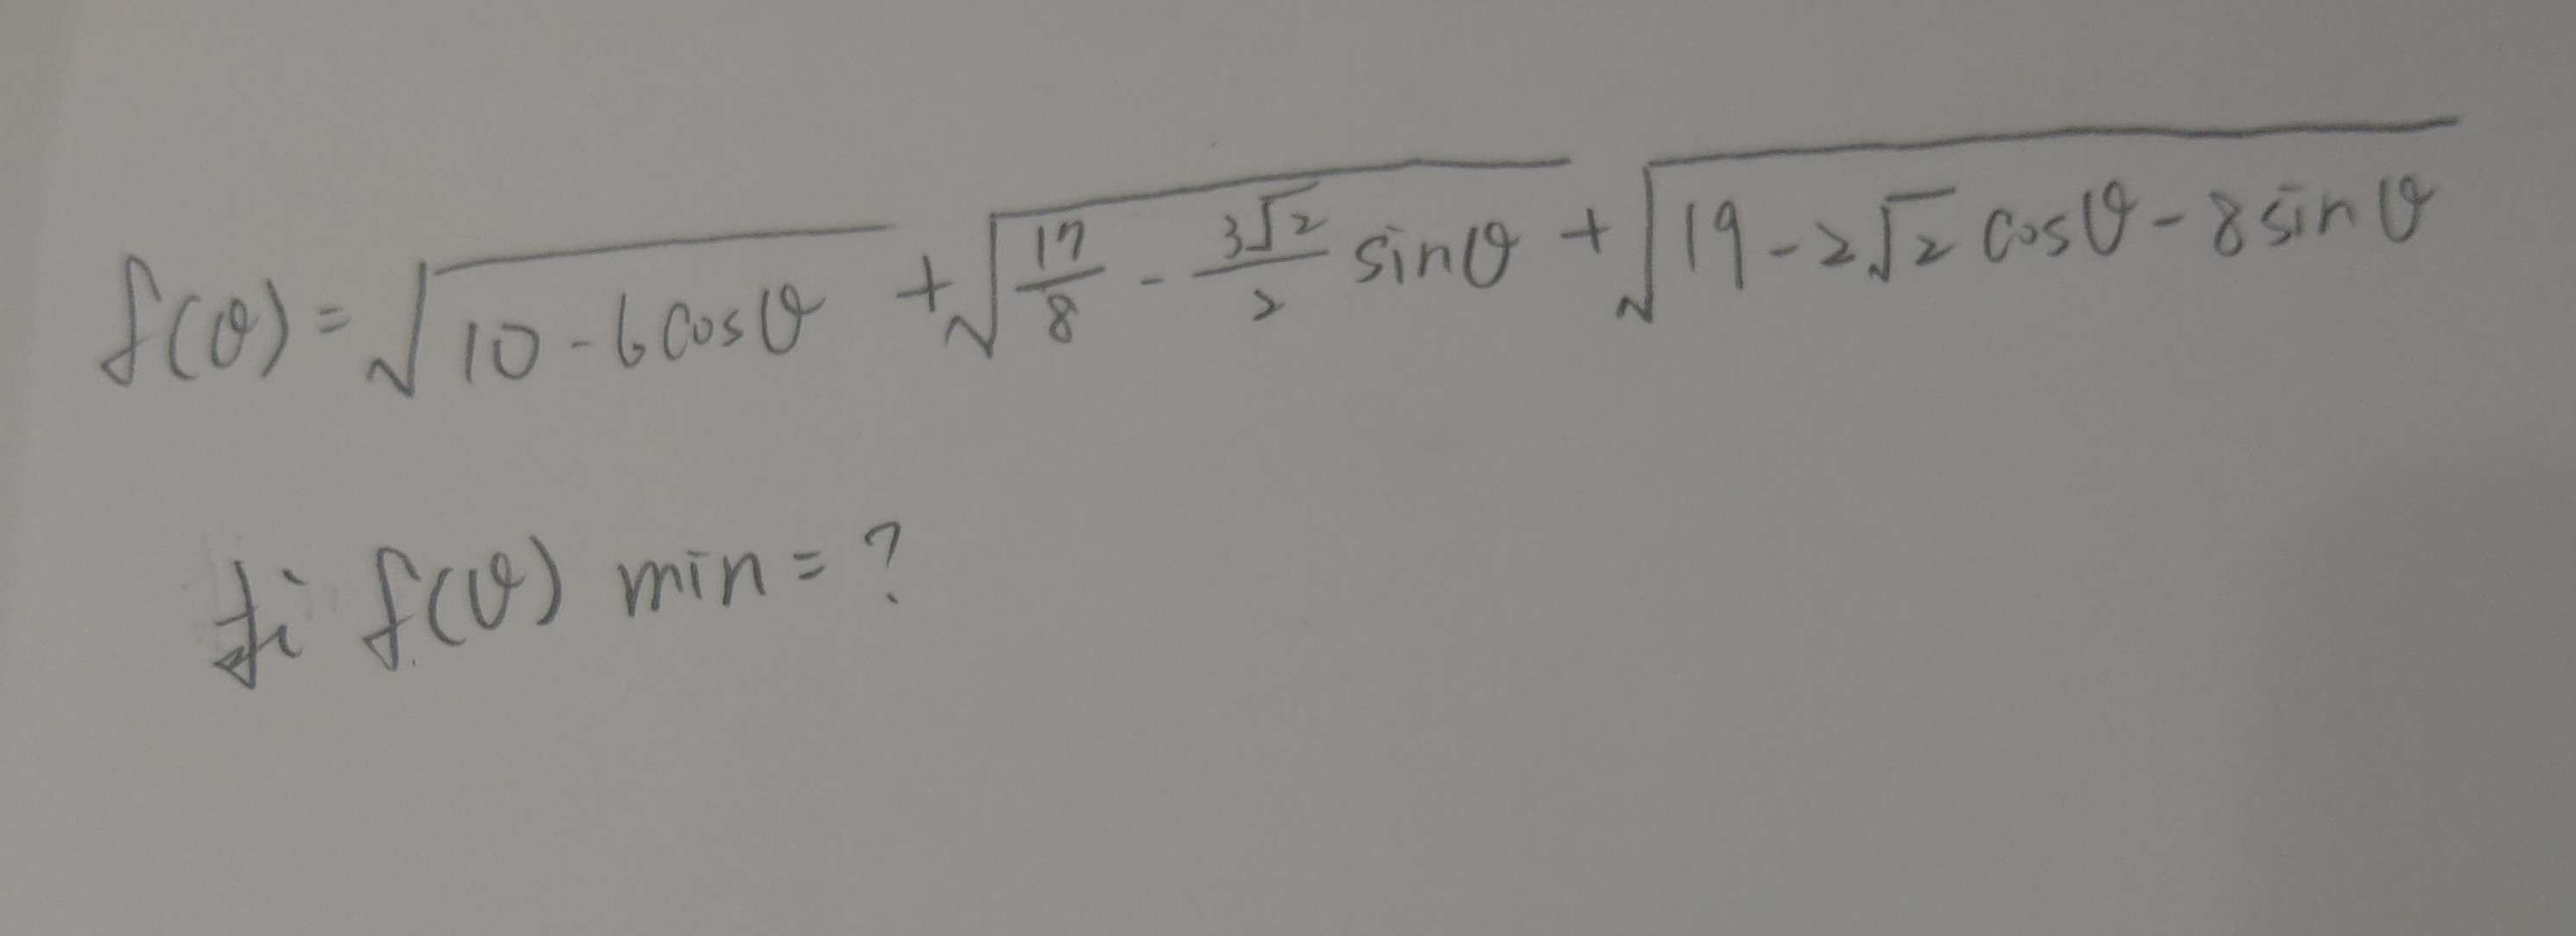 f(θ) = √(10 - 6cosθ) + √(17/8 - 3√2/2 sinθ) + √(19 - 2√2 cosθ - 8sinθ)
f(θ) min = ?